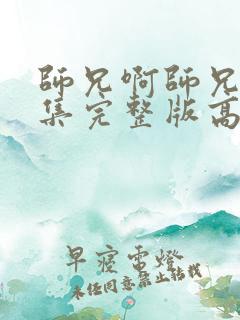 師兄啊師兄
集完整版高
早寝電燈
未经同意禁止转载